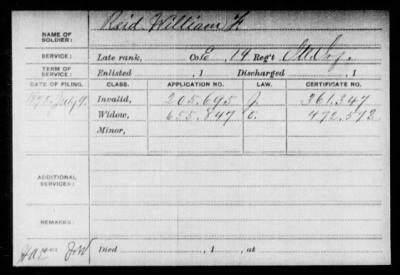 NAME OF SOLDIER: Reid William
SERVICE: Late rank, Co. E, 14 Reg't Inf.
TERM OF SERVICE: Enlisted , 1 Discharged , 1
DATE OF FILING. CLASS. APPLICATION NO. LAW. CERTIFICATE NO.
July 9. Invalid, 205.695 J. 361.347
Widow, 655.847 O. 472.573
Minor,
ADDITIONAL SERVICES:
REMARKS:
Died , 1 , at